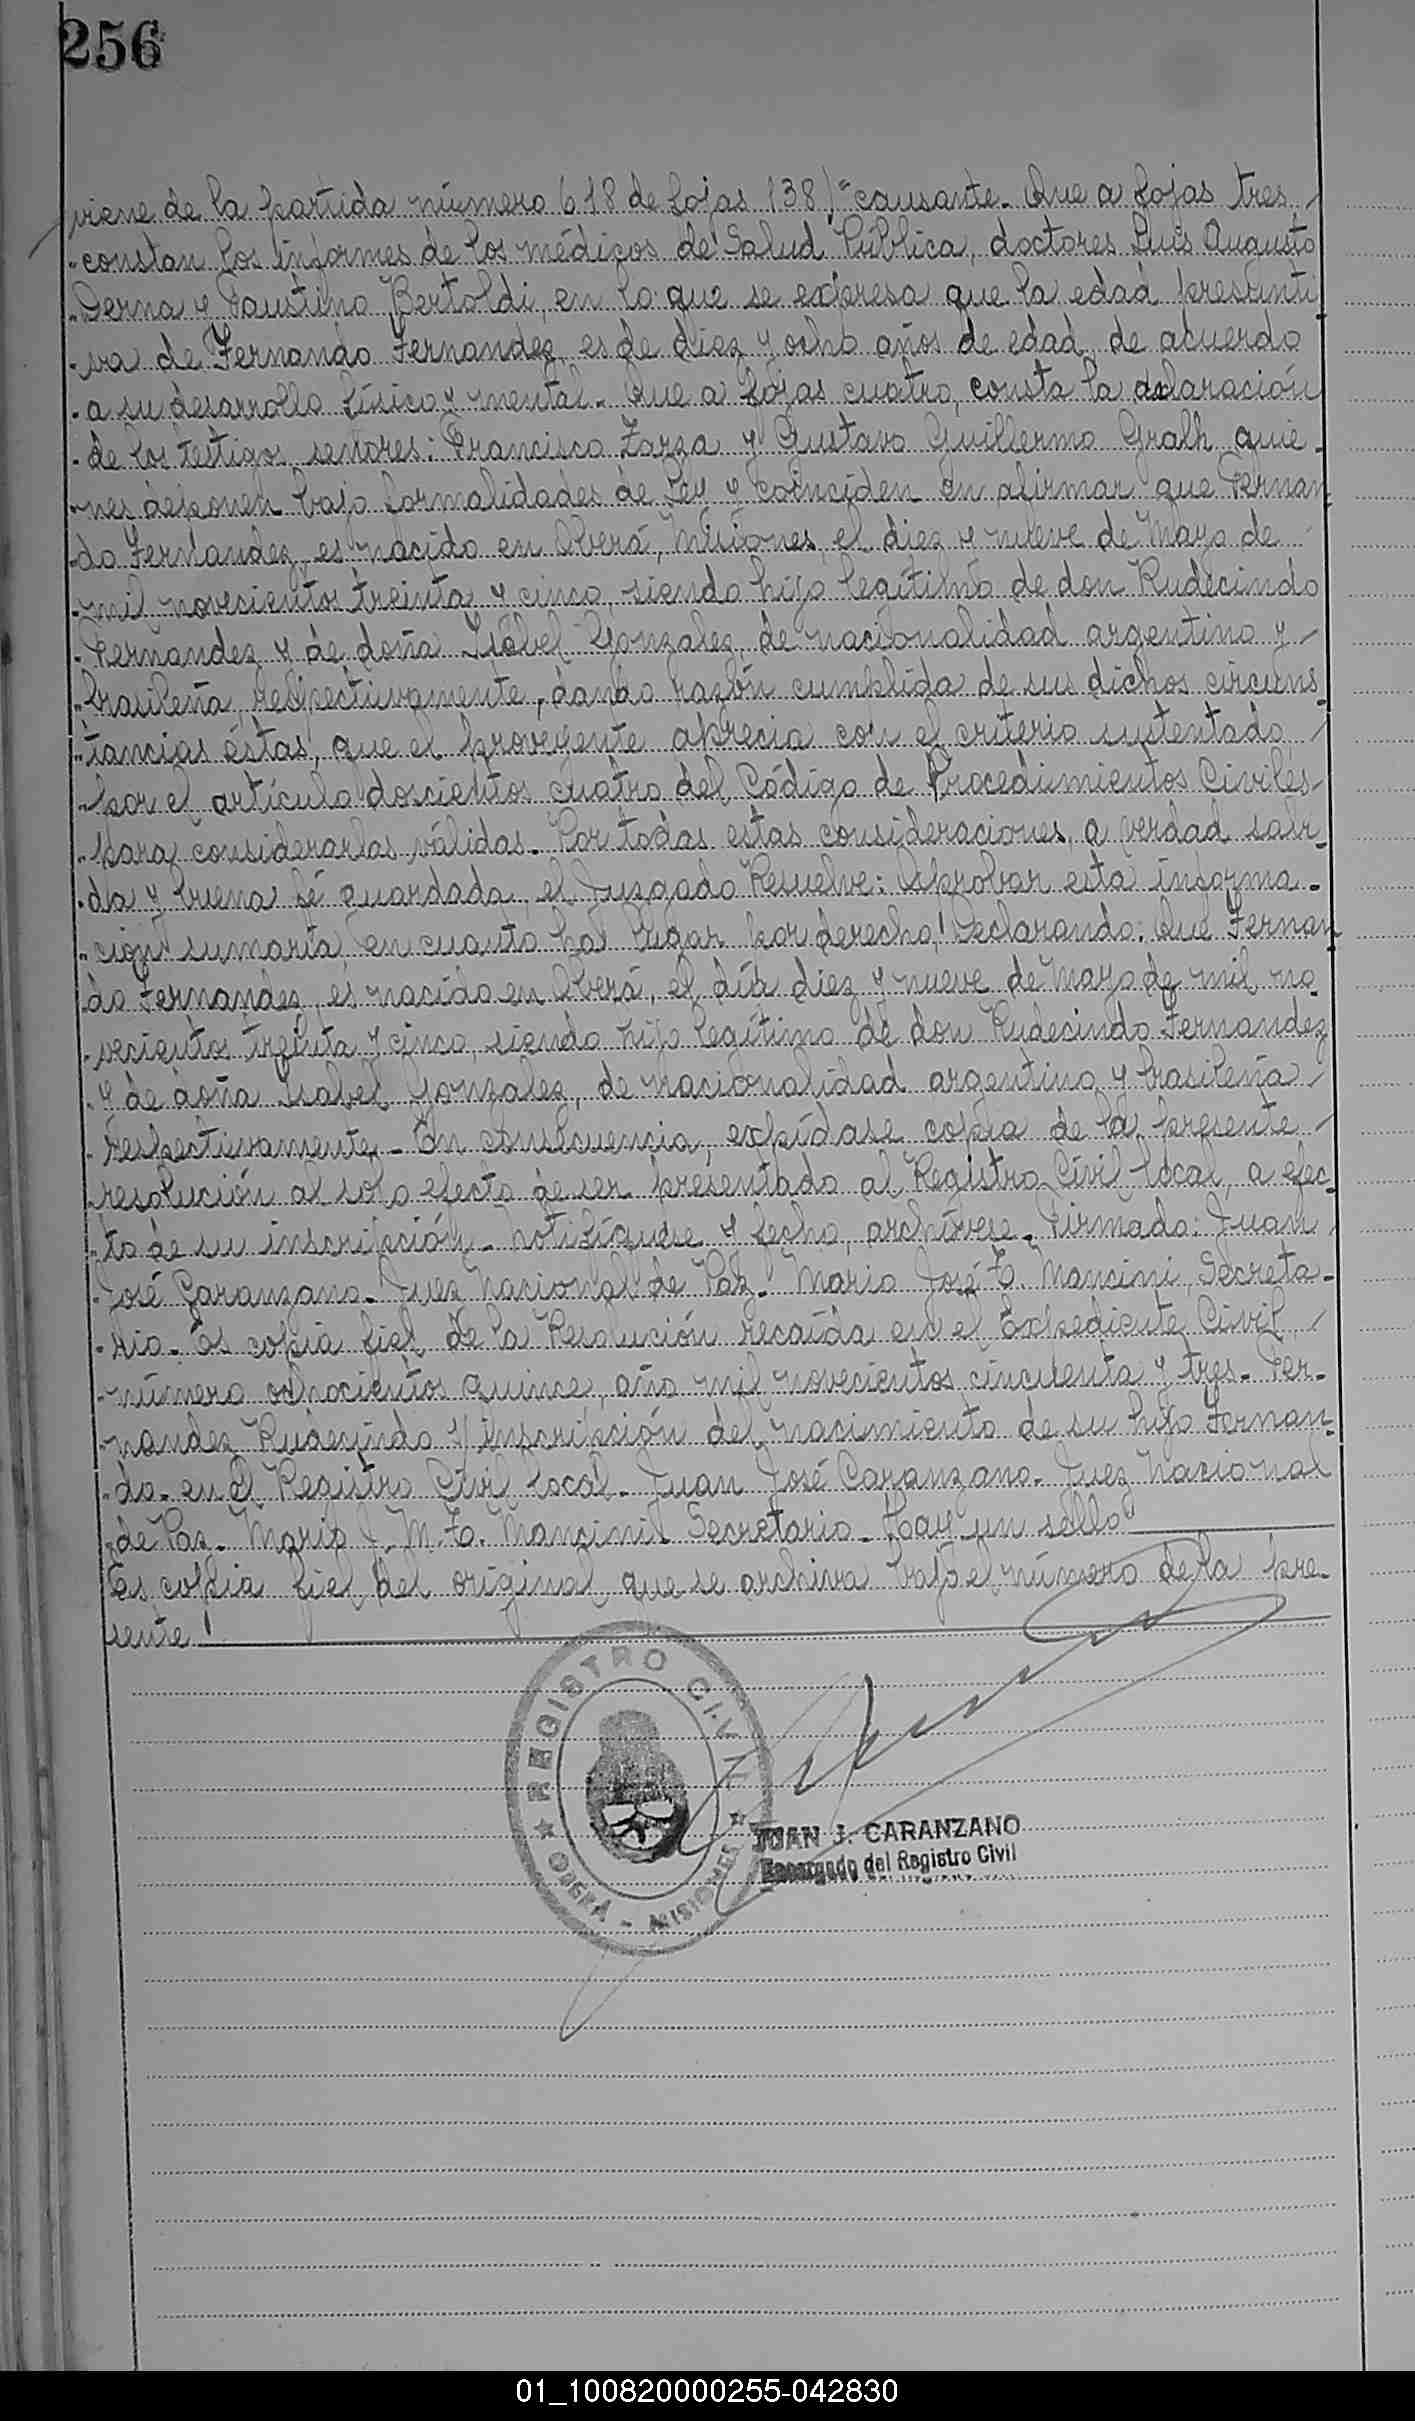 256
viene de la partida número 618 de fojas 138) "causante. Que a fojas tres
"constan los informes de los médicos de Salud Pública, doctores Luis Augusto
"Derna y Faustino Bertoldi, en lo que se expresa que la edad presunti
"va de Fernando Fernandez es de diez y ocho años de edad, de acuerdo
"a su desarrollo físico y mental. Que a fojas cuatro, consta la declaración
"de los testigos señores: Francisco Zarza y Gustavo Guillermo Gralh quie-
"nes deponen bajo formalidades de Ley y coinciden en afirmar que Fernan
"do Fernandez, es nacido en Oberá, Misiones, el diez y nueve de Mayo de
"mil novecientos treinta y cinco, siendo hijo legítimo de don Rudecindo
"Fernandez y de doña Isabel Gonzalez, de nacionalidad argentino y
"brasileña, respectivamente, dando razón cumplida de sus dichos circuns
"tancias éstas, que el proveyente aprecia con el criterio sustentado
"por el artículo doscientos cuatro del Código de Procedimientos Civiles
"para considerarlas válidas. Por todas estas consideraciones, a verdad sabi-
"da y buena fé guardada, el Juzgado Resuelve: Aprobar esta informa-
"ción sumaria en cuanto ha lugar por derecho, Declarando: Que Fernan
"do Fernandez, es nacido en Oberá, el día diez y nueve de Mayo de mil no-
"vecientos treinta y cinco, siendo hijo legítimo de don Rudecindo Fernandez
"y de doña Isabel Gonzalez, de nacionalidad argentino y brasileña
"respectivamente. En consecuencia, expídase copia de la presente
"resolución al solo efecto de ser presentado al Registro Civil local, a efec-
"to de su inscripción. Notifíquese y fecho, archívese. Firmado: Juan
"José Caranzano. Juez Nacional de Paz. Mario José T. Mancini, Secreta-
"rio. Es copia fiel de la Resolución recaída en el Expediente Civil
"número ochocientos quince, año mil novecientos cincuenta y tres. Fer-
"nandez Rudecindo s/ inscripción del nacimiento de su hijo Fernan-
"do. en el Registro Civil local. Juan José Caranzano. Juez Nacional
"de Paz. Mario J. M. T. Mancini. Secretario. Hay un sello
Es copia fiel del original que se archiva bajo el número de la pre-
sente
REGISTRO CIVIL
OBERÁ - MISIONES
JUAN J. CARANZANO
Encargado del Registro Civil
01_100820000255-042830